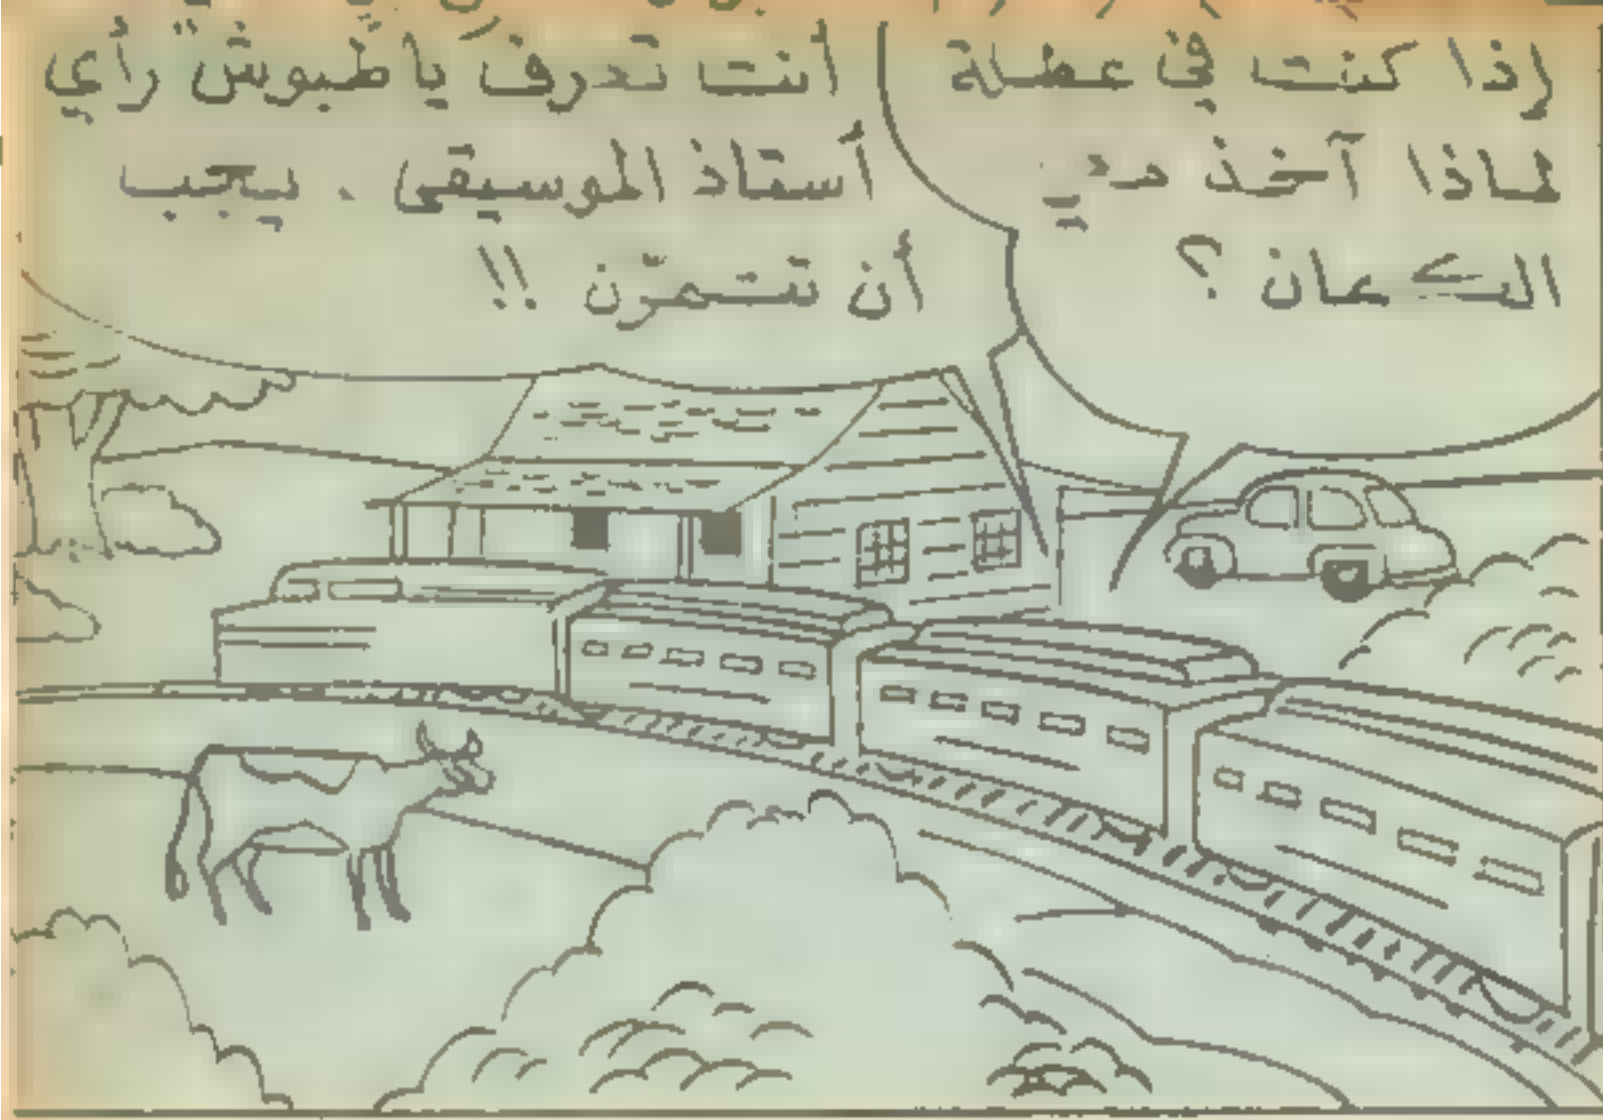 إذا كنت في عطلة
لماذا آخذ معي
الكمان ؟
أنت تعرف يا طبوش رأي
أستاذ الموسيقى . يجب
أن تتمرّن !!